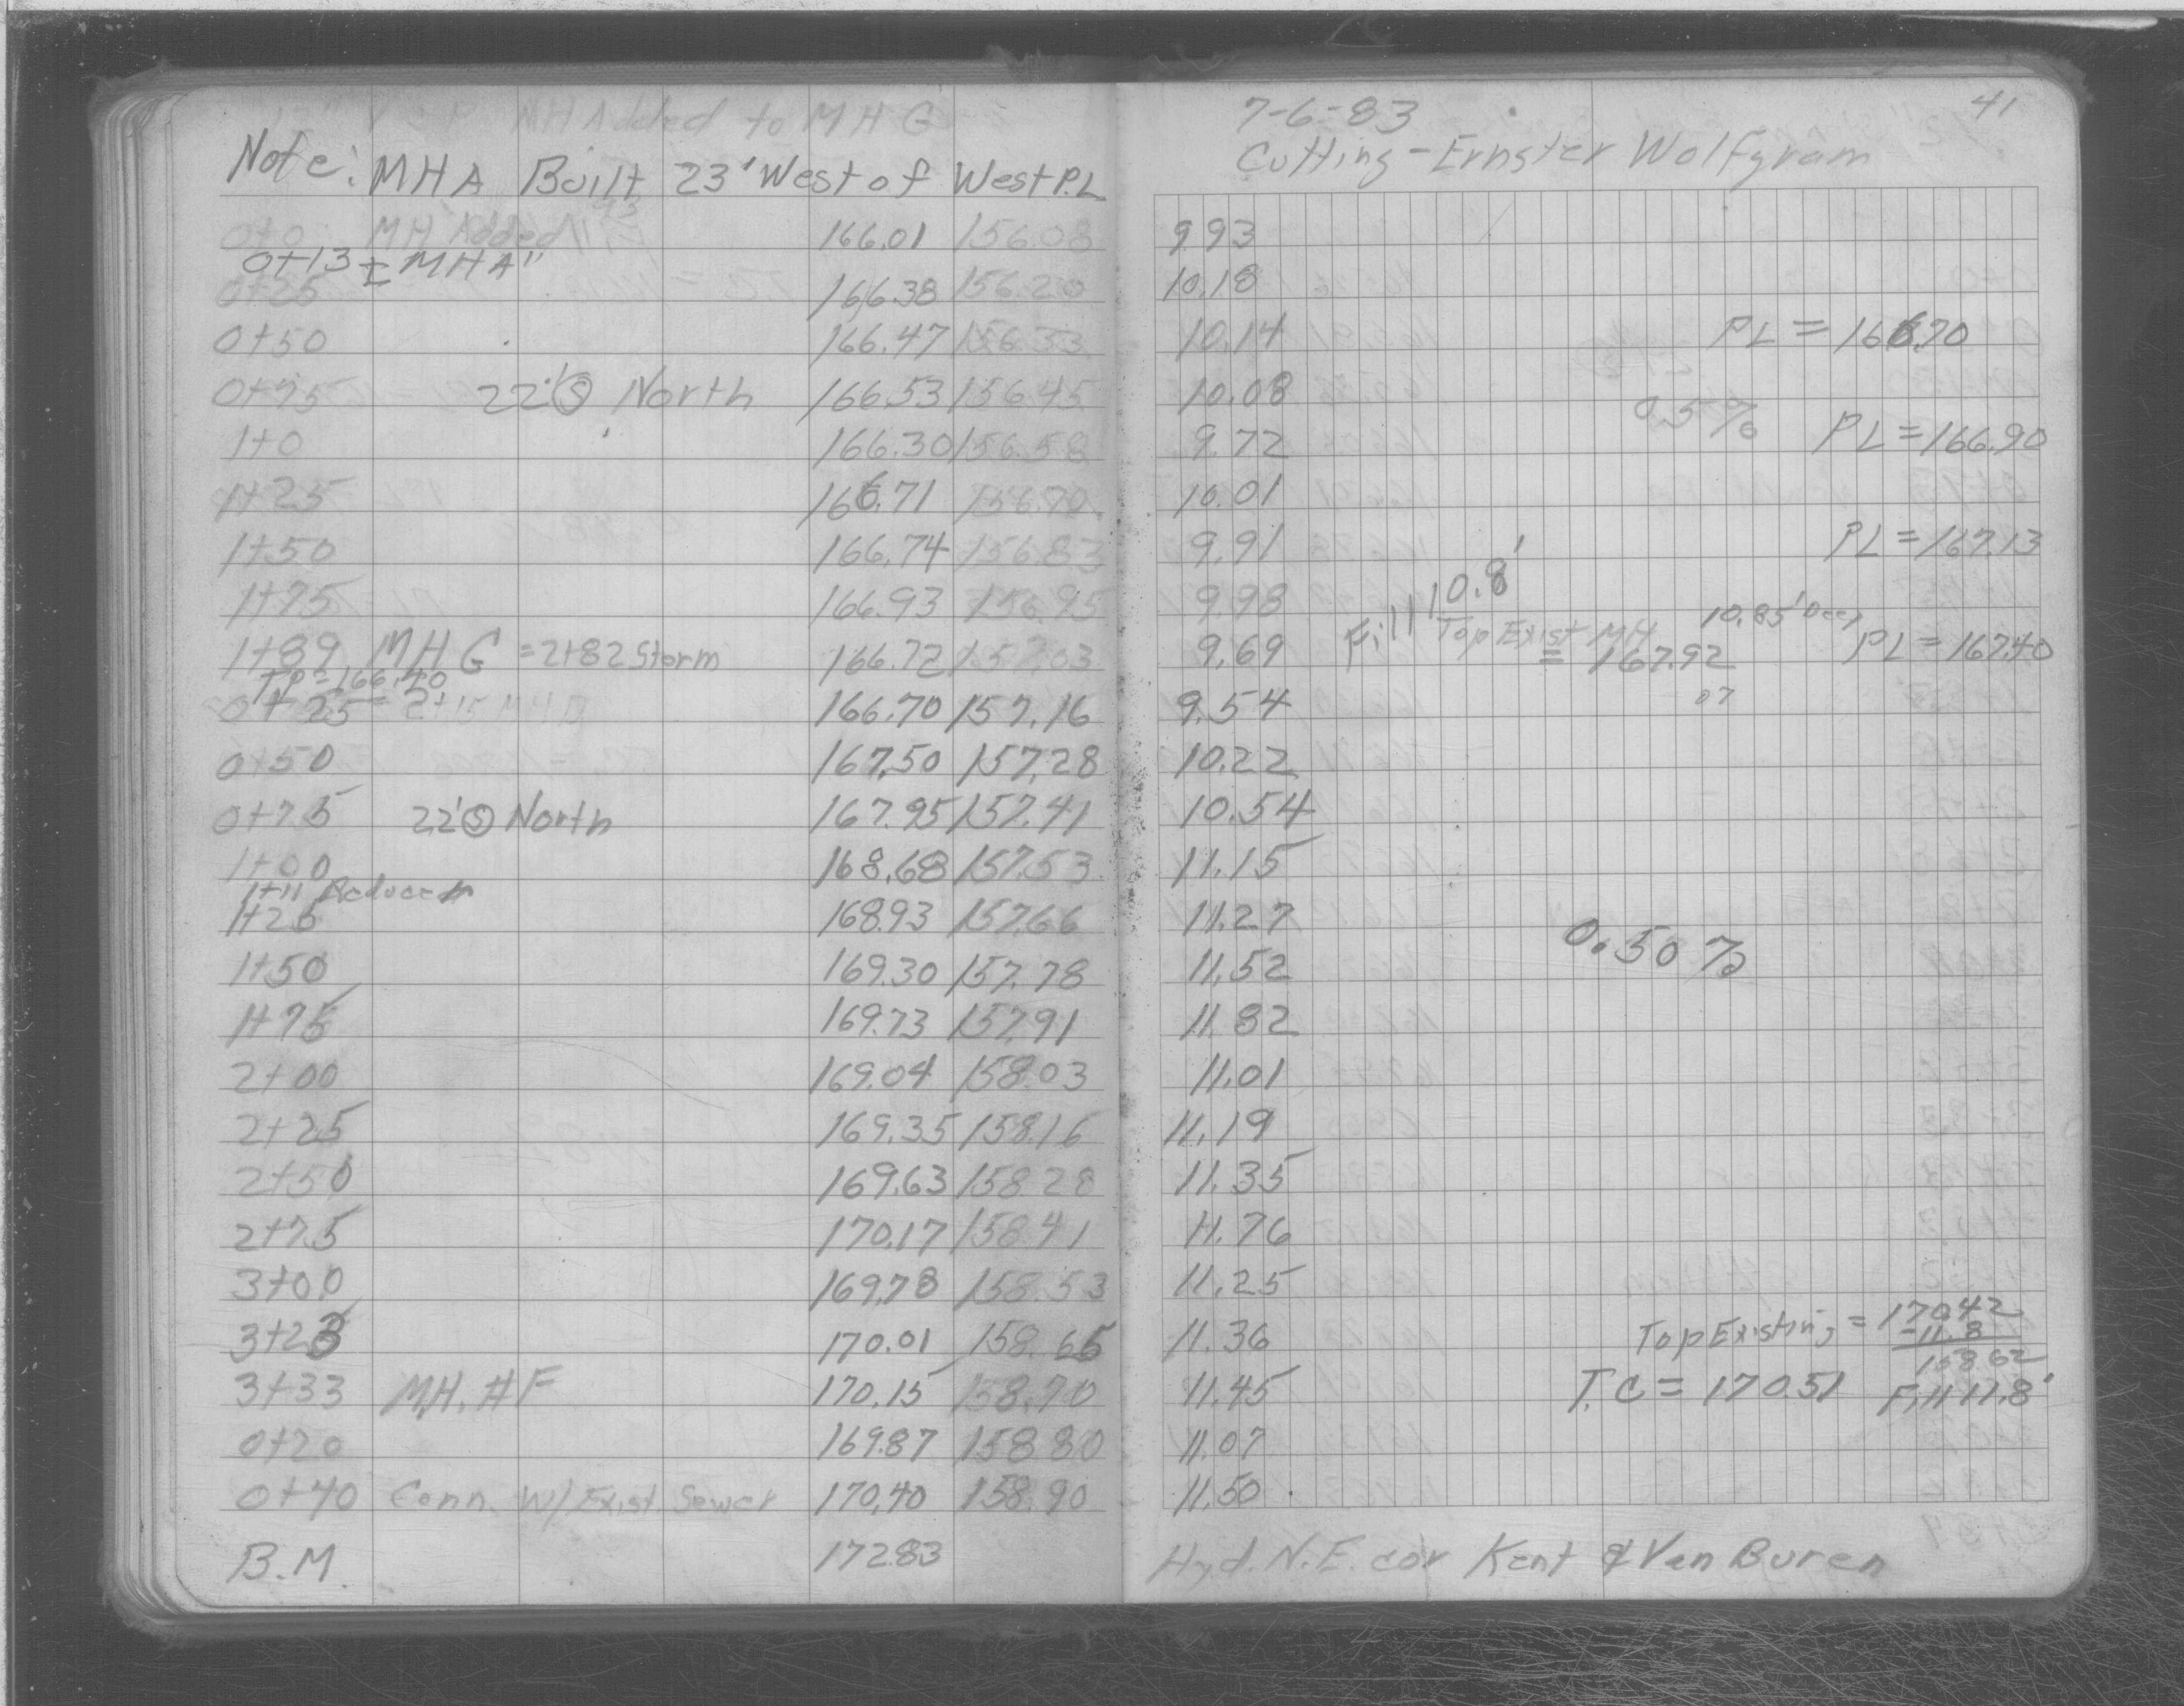 12" VSP MH Added to MH G
Note: MHA Built 23' West of West P.L
0+0 MH Added 166.01 156.08
0+13 ± MHA"
0+25 166.38 156.20
0+50 166.47 156.33
0+75 22' Ⓢ North 166.53 156.45
1+0 166.30 156.58
1+25 166.71 156.70
1+50 166.74 156.83
1+75 166.93 156.95
1+89 MH G = 2+82 Storm 166.72 157.03
TP = 166.40
0+25 = 2+15 MH D 166.70 157.16
0+50 167.50 157.28
0+75 22' Ⓢ North 167.95 157.41
1+00 168.68 157.53
1+11 Reducer
1+25 168.93 157.66
1+50 169.30 157.78
1+75 169.73 157.91
2+00 169.04 158.03
2+25 169.35 158.16
2+50 169.63 158.28
2+75 170.17 158.41
3+00 169.78 158.53
3+23 170.01 158.65
3+33 M.H. #F 170.15 158.70
0+20 169.87 158.80
0+40 Conn. W/ Exist. Sewer 170.40 158.90
B.M. 172.83
41
7-6-83
Cutting - Ernster Wolfgram
9.93
10.18
10.14 PL = 166.70
10.08
0.5%
9.72 PL = 166.90
10.01
9.91 PL = 167.13
9.98
Fill 10.8'
10.85' Deep
9.69 Top Exist MH = 167.92 PL = 167.40
07
9.54
10.22
10.54
11.15
11.27
0.50%
11.52
11.82
11.01
11.19
11.35
11.76
11.25
11.36 Top Existing = 170.42
-11.8
158.62
11.45 T.C = 170.51 Fill 11.8'
11.07
11.50
Hyd. N.E. cor Kent & Van Buren